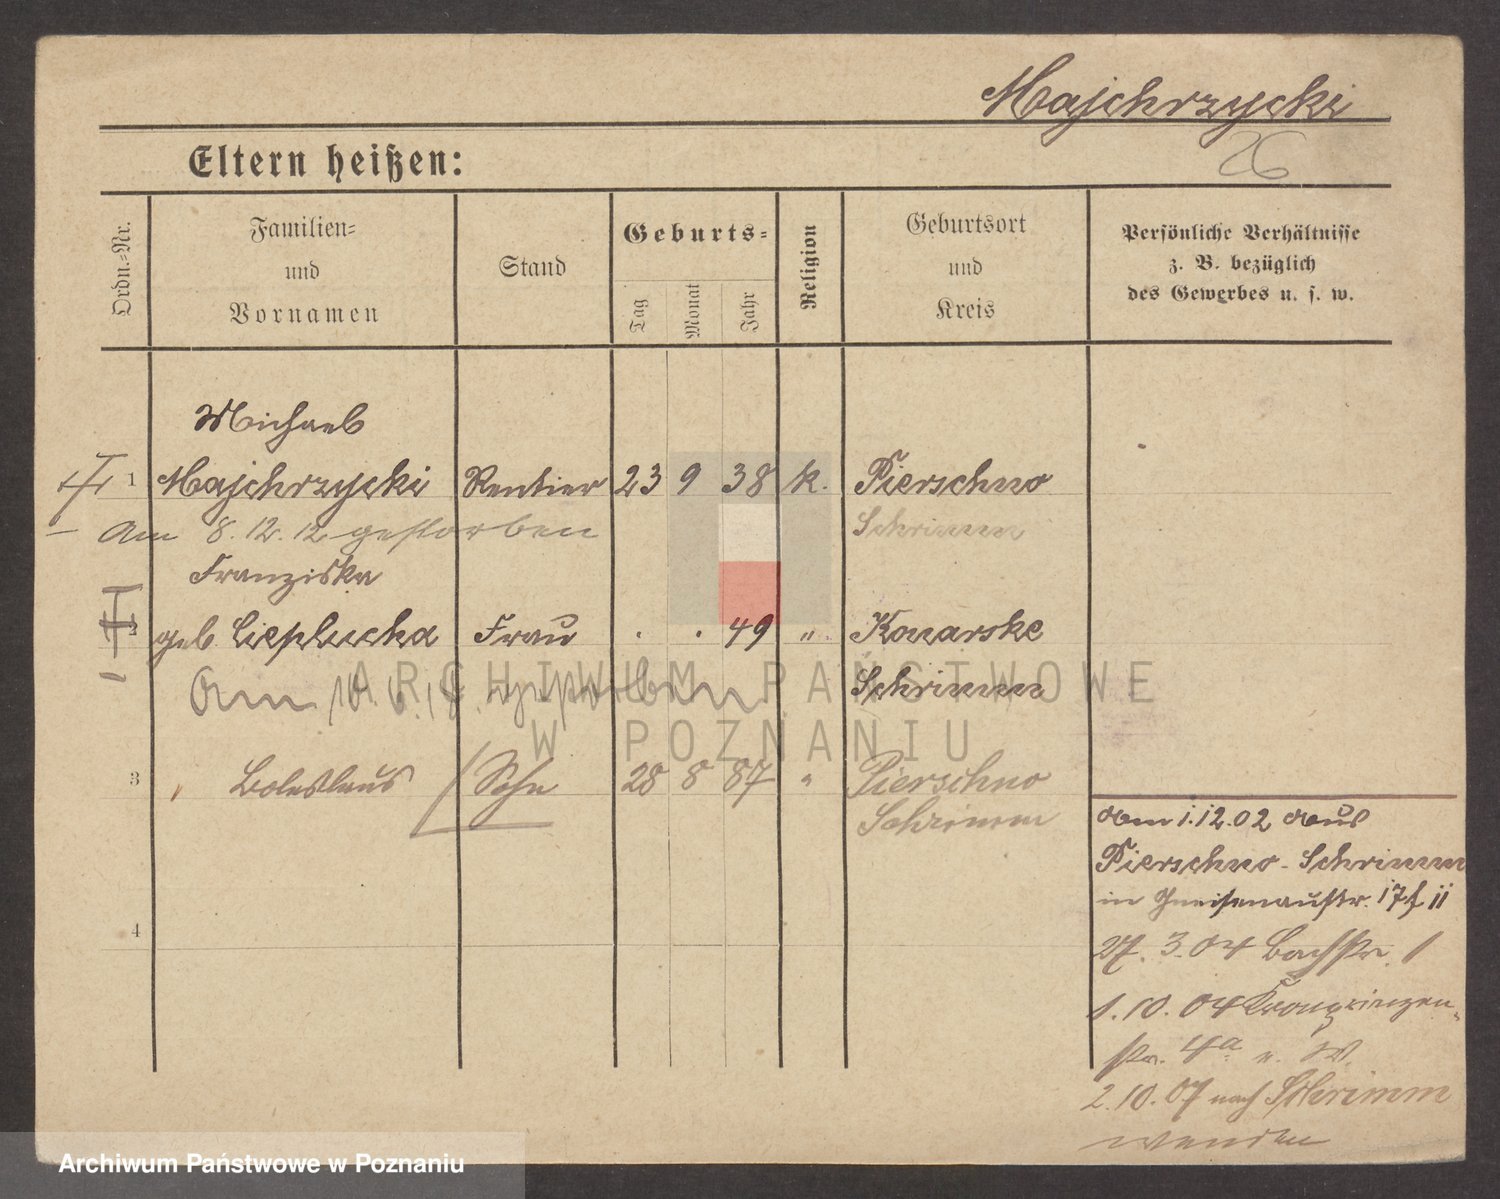 Majchrzycki
26
Eltern heißen:
Ordn.-Nr.
Familien-
und
Vornamen
Stand
Geburts-
Tag
Monat
Jahr
Religion
Geburtsort
und
Kreis
Persönliche Verhältnisse
z. B. bezüglich
des Gewerbes u. s. w.
Michael
1 Majchrzycki Rentier 23 9 38 k. Pierschno
Am 8. 12. 12 gestorben Schrimm
Franziska
2 geb Cieplucha Frau . . 49 " Konarske
Am 10. 6. 18. gestorben Schrimm
3 Boleslaus Sohn 28 8 87 " Pierschno
Schrimm
4
Am 1.12.02 aus
Pierschno - Schrimm
in Gneisenaustr. 17 II
27. 3. 04 Bachstr. 1
1. 10. 04 Kronprinzen-
str. 4a W.
2. 10. 07 nach Schrimm
wenden
ARCHIWUM PAŃSTWOWE
W POZNANIU
Archiwum Państwowe w Poznaniu